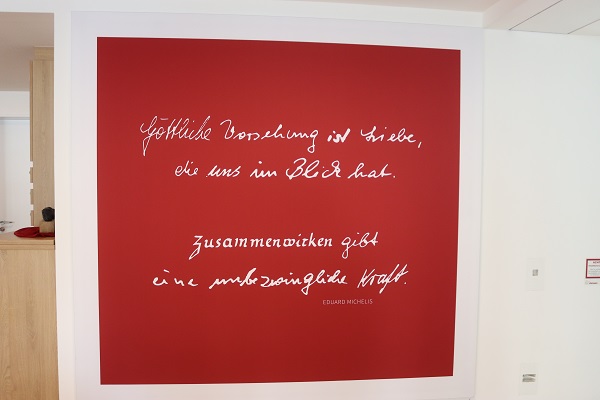 Göttliche Vorsehung ist Liebe,
die uns im Blick hat.
Zusammenwirken gibt
eine unbezwingliche Kraft.
EDUARD MICHELIS